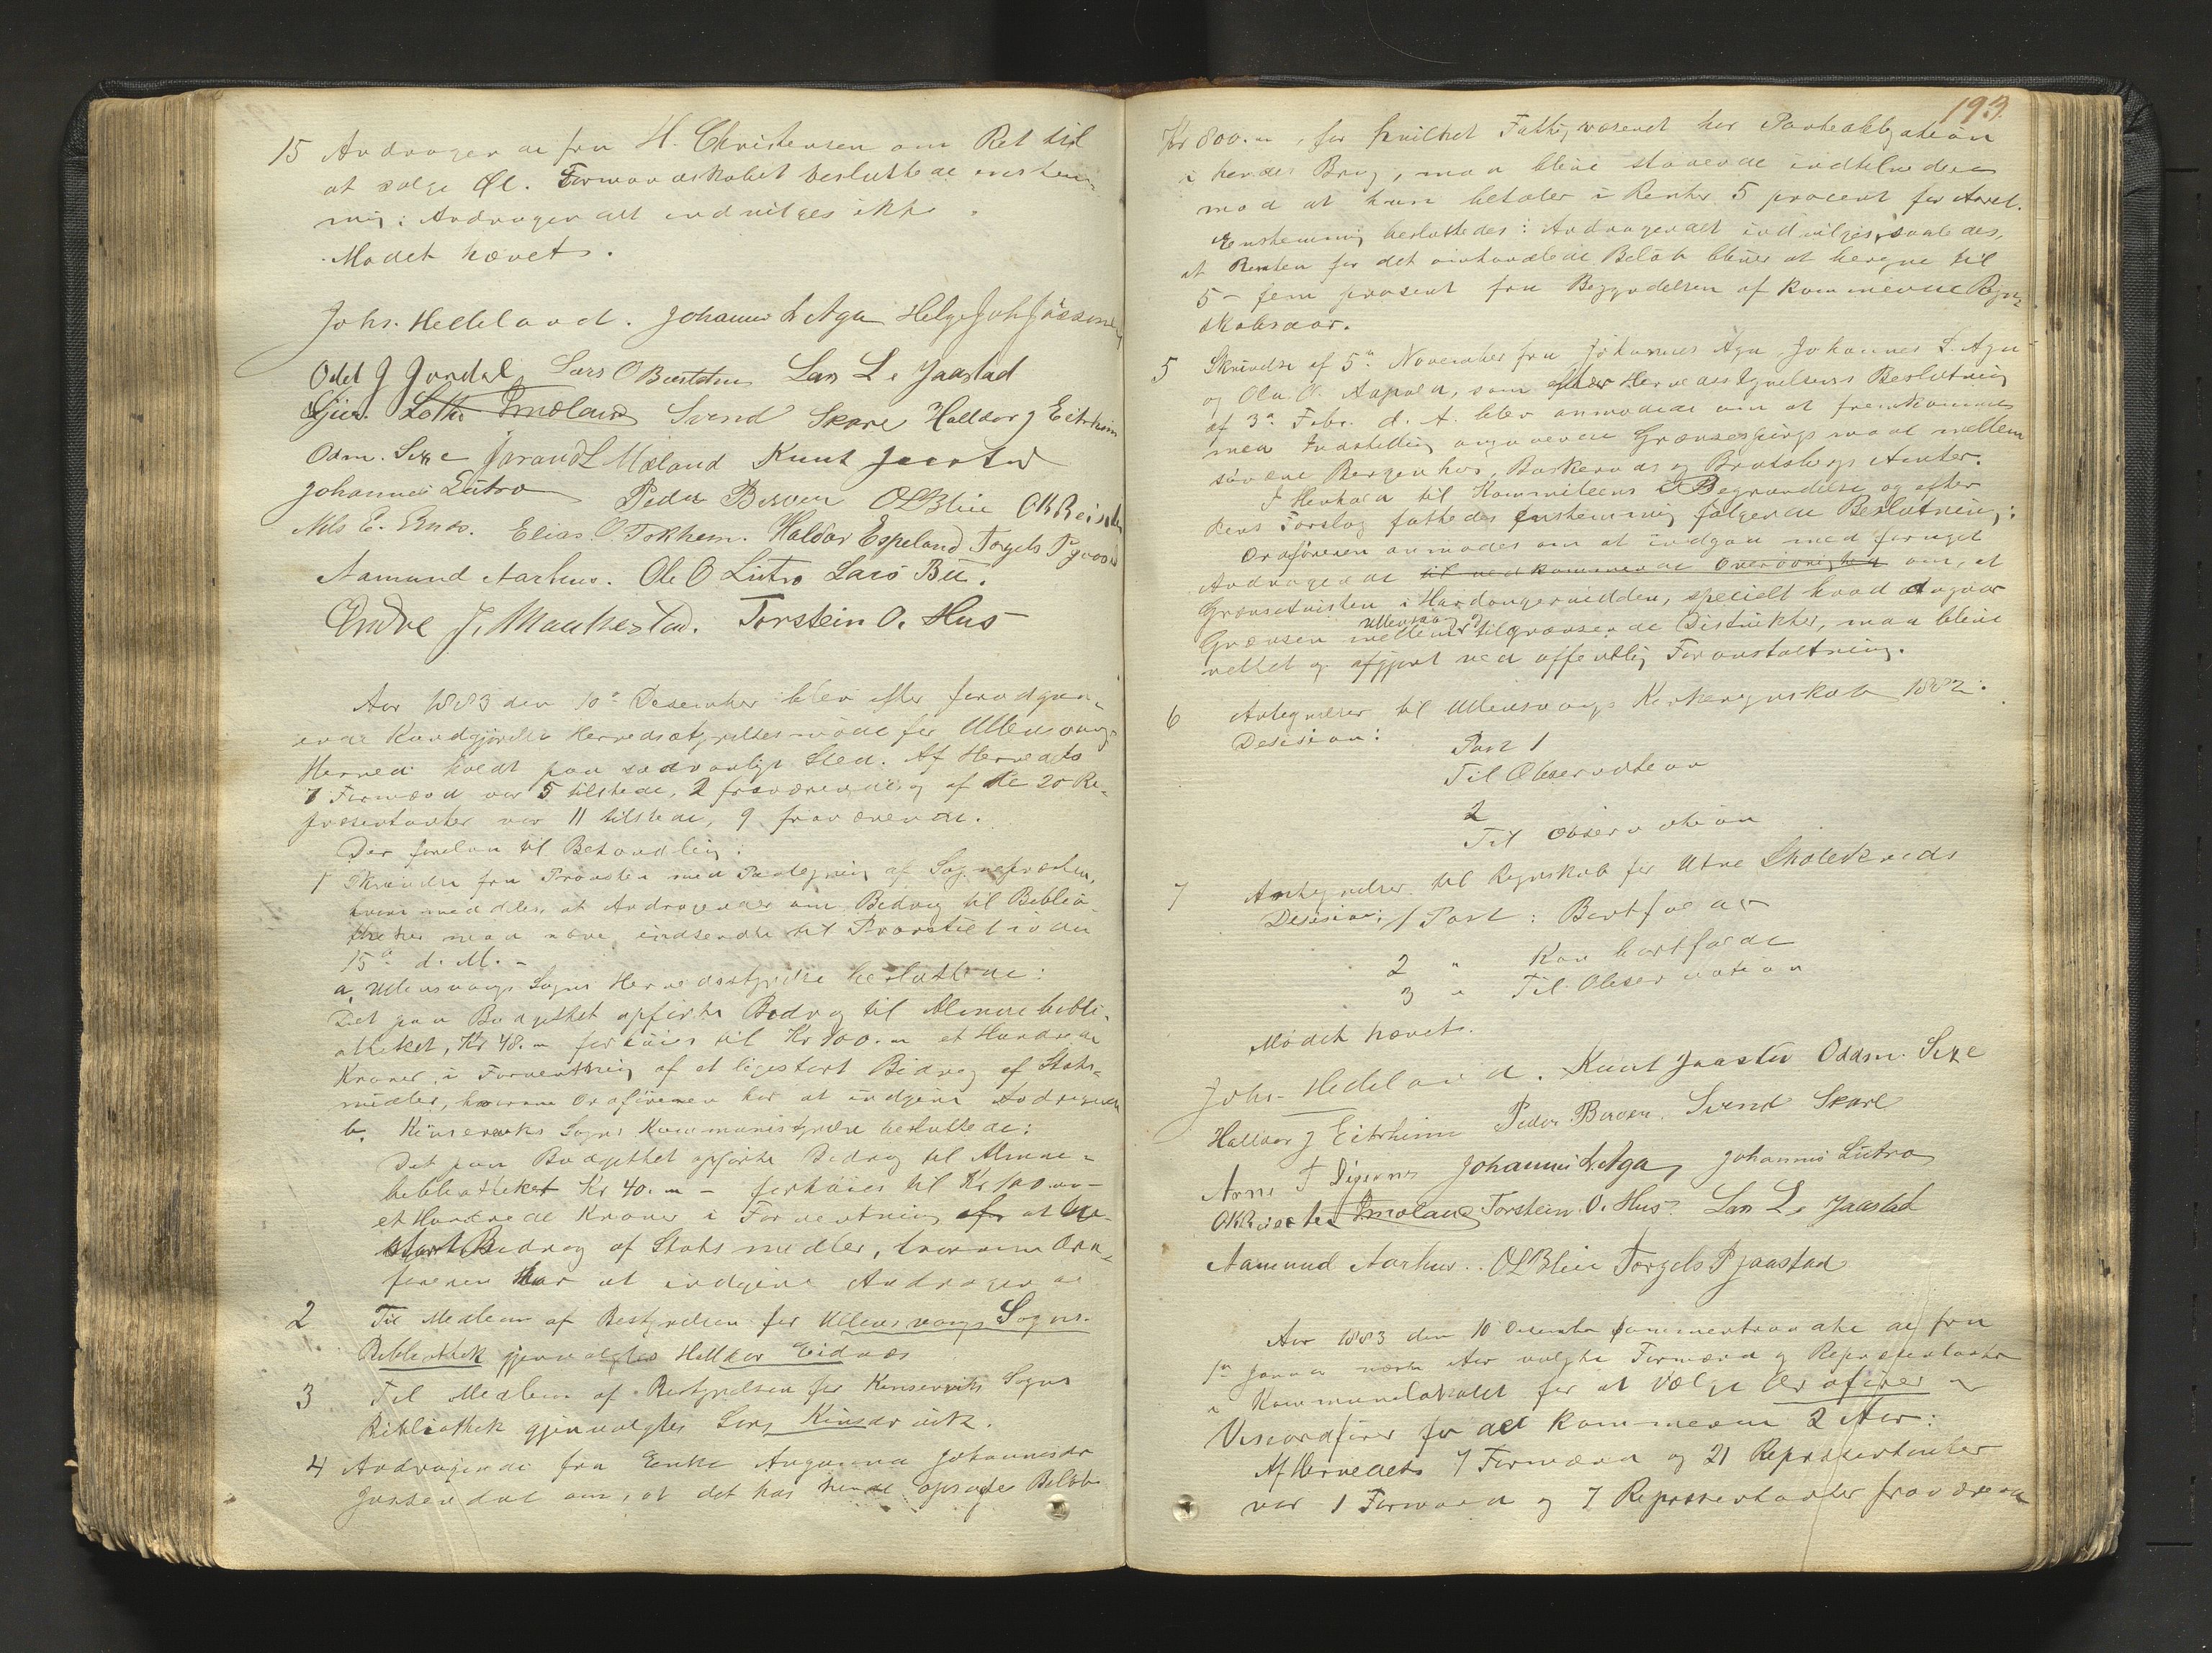 15 Andragende fra H. Christensen om Ret til
at sælge Øl. Formandskabet besluttede enstem-
mig: Andragendet indvilges ikke.
Mødet hævet.
Johs. Hedeland. Johannes L Aga Helge Joh
Odd J Jordal Lars O Lars L. Jaastad
Gjer. Lothe Svend Skare Halldor J Eitrheim
Odm. Sexe Jørund L Mæland Knut Jaastad
Johannes Lutro Peder Berven O L Blie O K Reiseter
Nils E. Elias O. Tokheim. Haldor Espeland Torgels P Jaastad
Aamund Aarhus. Ole O Lutro Lars Bu.
Endre J. Maakestad. Torstein O. Hus
Aar 1883 den 10de Desember blev efter foregaa-
ende Kundgjørelse Herredsstyrelsesmøde for Ullensvang
Herred holdt paa sædvanligt Sted. Af Herredets
7 Formænd var 5 tilstede, 2 fraværende og af de 20 Re-
præsentanter var 11 tilstede, 9 fraværende.
Der forelaa til Behandling:
1 Skrivelse fra Provsten med Paategning af Sognepresten,
hvori meddeles, at Andragender om Bidrag til Biblio-
theker maa være indsendte til Provstiet inden
15de d. M. -
a, Ullensvangs Sogns Herredsstyrelse besluttede:
Det paa Budgettet opførte Bidrag til Almuebibli-
otheket, Kr 48. forhøies til Kr 100. et Hundrede
Kroner, i Forventning af et ligestort Bidrag af Stats-
midler, hvorom Ordføreren har at indgive Andragende
b, Kinserviks Sogns Kommunestyrelse besluttede:
Det paa Budgettet opførte Bidrag til Almue-
bibliotheket Kr 40. - forhøies til Kr 100. -
et Hundrede Kroner i Forventning af et lige-
stort Bidrag af Statsmidler, hvorom Ord-
føreren har at indgive Andragende
2 Til Medlem af Bestyrelsen for Ullensvangs Sogns
Bibliothek gjenvalgtes Halldor Eidnæs
3 Til Medlem af Bestyrelsen for Kinserviks Sogns
Bibliothek gjenvalgtes Lars Kinsarvik.
4 Andragende fra Enke Johannesdr
om, at det hos hende opsagte Beløb
193.
Kr 800. for hvilket Fattigvæsenet har Panteobligation
i hendes Brug, maa blive staaende indtil videre
mod at hun betaler i Renter 5 procent for Aaret.
Enstemmig besluttedes: Andragendet indvilges, saaledes,
at Renten for det omhandlede Beløb bliver at beregne til
5 - fem prosent fra Begyndelsen af kommende Regn-
skabsaar.
5 Skrivelse af 5te November fra Johannes Aga, Johannes L. Aga
og Ola O. Aapold, som efter Herredsstyrelsens Beslutning
af 3de Febr. d. A. blev anmodede om at fremkomme
med Indstilling angaaende Grændsespørgsmaal mellem
søndre Bergenhus, Buskeruds og Bratsbergs Amter.
I Henhold til Kommiteens Begrundelse og efter
dens Forslag fattedes enstemmig følgende Beslutning:
Ordføreren anmodes om at indgaa med fornyet
Andragende til vedkommende Overøvrighed om, at
Grænsetvisten i Hardangervidden, specielt hvad angaar
Grænsen mellem Ullensvang og tilgrænsende Distrikter, maa blive
rettet og afgjort ved offentlig Foranstaltning.
6 Antegnelser til Ullensvangs Kirkeregnskab 1882.
Desision: Post 1
Til Observation
2
Til Observation
7 Antegnelser til Regnskab for Utne Skolekreds
Desision: 1 Post: Bortfalder
2 " Kan bortfalde
3 " Til Observation
Mødet hævet.
Johs. Hedeland. Knut Jaastad Oddm. Sexe
Halldor J Eitrheim Peder Berven. Svend Skare
Arne T Digranes Johannes L Aga, Johannes Lutro
O K Reiseter Torstein O. Hus. Lars L. Jaastad
Aamund Aarhus. O L Blie Torgels P Jaastad
Aar 1883 den 10 Desember sammentraadte de fra
1ste Januar næste Aar valgte Formænd og Repræsentanter
i Kommunelokalet for at vælge Ordfører og
Viseordfører for det kommende 2 Aar:
Af Herredets 7 Formænd og 21 Repræsentanter
var 1 Formand og 7 Repræsentanter fraværende